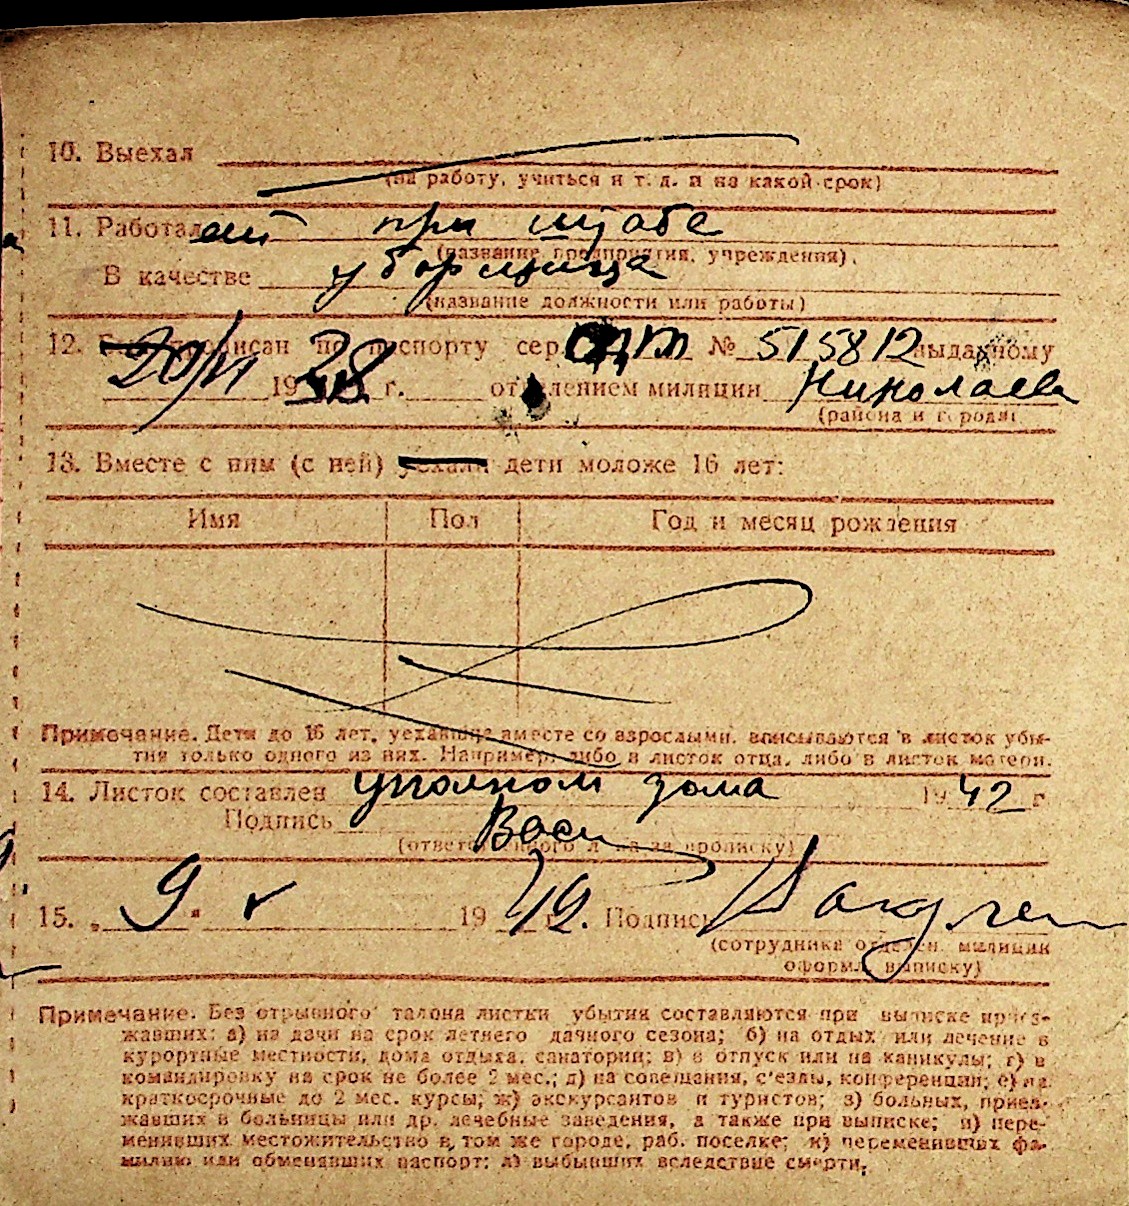 10. Выехал
(на работу, учиться и т. д. и на какой срок)
11. Работал при штабе
(название предприятия, учреждения).
В качестве уборщица
(название должности или работы)
12. по паспорту сер. № 515812 выданному
20/VI 1938 г. отделением милиции Николаева
(района и города)
13. Вместе с ним (с ней) уехали дети моложе 16 лет:
Имя Пол Год и месяц рождения
Примечание. Дети до 16 лет, уехавшие вместе со взрослыми, вписываются в листок убы-
тия только одного из них. Например: либо в листок отца, либо в листок матери.
14. Листок составлен 1942 г.
Подпись Васи
(ответственного лица за прописку)
15. „9" V 1942. Подпись
(сотрудника отделен. милиции
оформл. выписку)
Примечание. Без отрывного талона листки убытия составляются при выписке приез-
жавших: а) на дачи на срок летнего дачного сезона; б) на отдых или лечение в
курортные местности, дома отдыха, санатории; в) в отпуск или на каникулы; г) в
командировку на срок не более 2 мес.; д) на совещания, с'езды, конференции; е) на
краткосрочные до 2 мес. курсы; ж) экскурсантов и туристов; з) больных, приез-
жавших в больницы или др. лечебные заведения, а также при выписке; и) пере-
менивших местожительство в том же городе, раб. поселке; к) переменивших фа-
милию или обменявших паспорт; л) выбывших вследствие смерти.